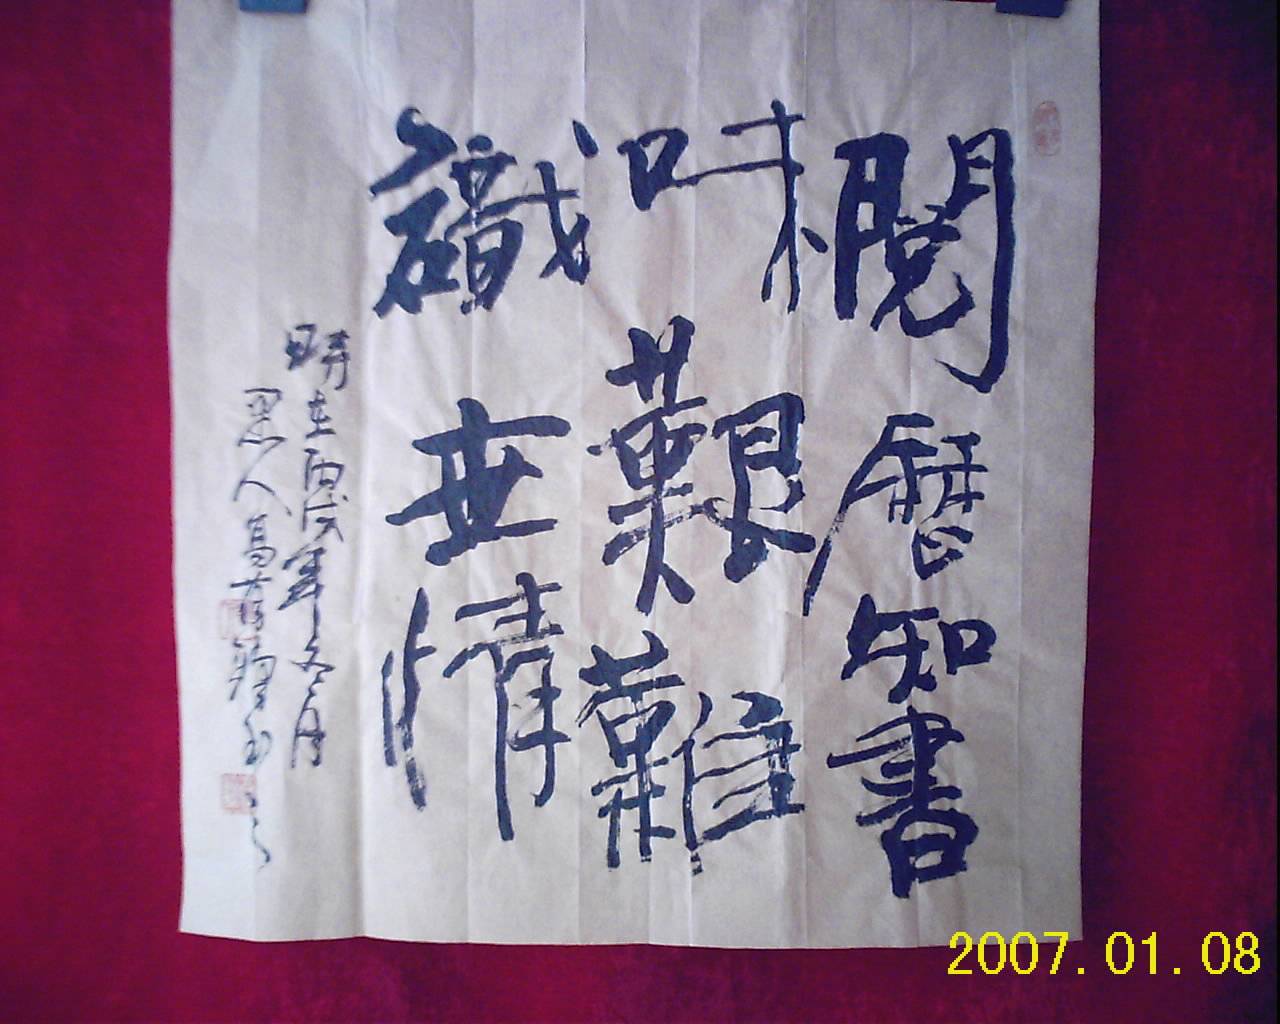 閱歷知書味
艱難識世情
時在丙戌年冬月
墨人高
2007.01.08